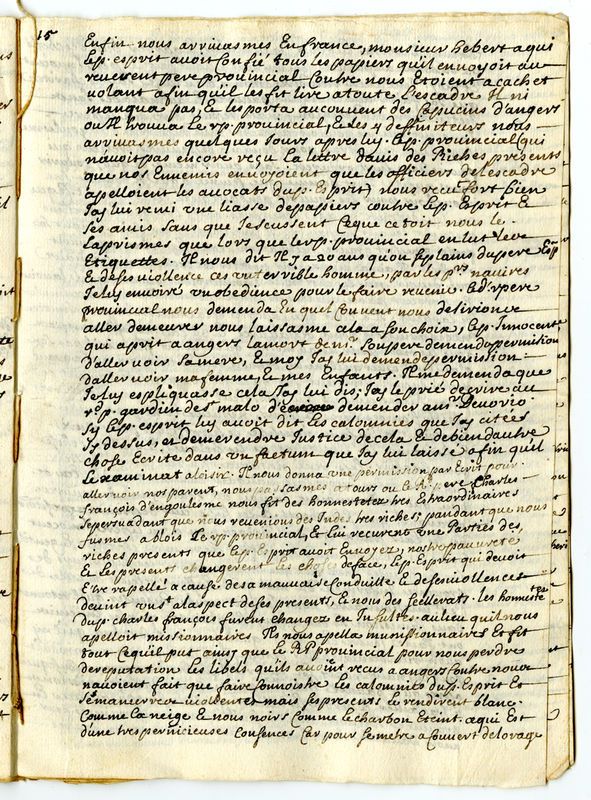 15
Enfin nous arrivasmes En france, monsieur hebert a qui
le p. esprit avoit Confié tous les papiers qu'il envoyoit au
reverent pere provincial Contre nous Etoient a cachet
volant afin qu'il les fit lire a toute L'escadre Il ni
manqua pas, & les porta au couvent des Capucins d'angers
ou Il trouva Le rp. provincial, & Les 4 deffiniteurs nous
arrivasmes quelques Jours apres luy. Le p. provincial (qui
n'avoit pas encore reçu La lettre d'avis des Riches presents
que nos Ennemis envoyoient que les officiers de lescadre
apelloient les avocats du p. Esprit) nous recu fort bien
Jay lui remi une liasse de papiers contre Le p. Esprit &
ses amis sans que Je scussent Ce que ce toit nous le
laprismes que lors que le rp. provincial en lut leve
Etiquettes. Il nous dit Il y a 20 ans qu'on se plains du pere Esp
& de ses viollence ces un terrible homme, par les pr navires
Je luy envoiré un obedience pour le faire revenir. Le d. r pere
provincial nous demenda En quel Couvent nous desirionce
aller demeurer nous laissasme cela a son choix, Le p. Innocente
qui aprit a angers La mort de mr. son pere demenda permission
D'aller voir sa mere, & moy Jay lui demende permission
D'aller voir ma femme, & mes Enfants. Il me demenda que
Je luy espliquasse cela Jay lui dis, Jay le prié decrire au
r. p. gardien de st malo d' demender a mr. Denorio
Sy Le p. esprit luy avoit dit Les calomnies que Jay citées
Jy dessus, et demerendre Justice de cela & de bien dautre
chose Ecrite dans un factum que Jay lui laissé afin quil
Le xaminat a loisir. Il nous donna une permission par Ecrit pour
aller voir nos parent, nous passasmes a tours ou le R. pere Charles
françois d'engoulesme nous fit des honnestetez tres Extraordinaires
se persuadant que nous revenions des Indes tres riches, pandant que nous
fusmes a blois Le rp. provincial, & Lui recurent une Parties des
riches presents que Le p. Esprit avoit Envoyez, nostre pauvreté
& Les presents changerent les choses de face, Le p. Esprit qui devoit
Etre rapellé a cause de sa mauvaise Conduitte & de ses violences
devint un st a laspect de ses presents, & nous des scellerats. les honnestetes
du p. charles françois furent changez en Insultes. au lieu quil nous
apelloit missionnaires Ils nous apella munissionnaires Et fit
tout Ce quil put ainsy que le RP provincial pour nous perdre
de reputation les libels quils avoint recus a angers Contre nous
n'avoient fait que faire Connoistre les calomnies du p. Esprit Et
mais ses presents le rendirent blanc
Comme la neige & nous noirs Comme le charbon Eteint. a qui Est
d'une tres pernicieuses Consences Car pour se metre a Couvert de lorage